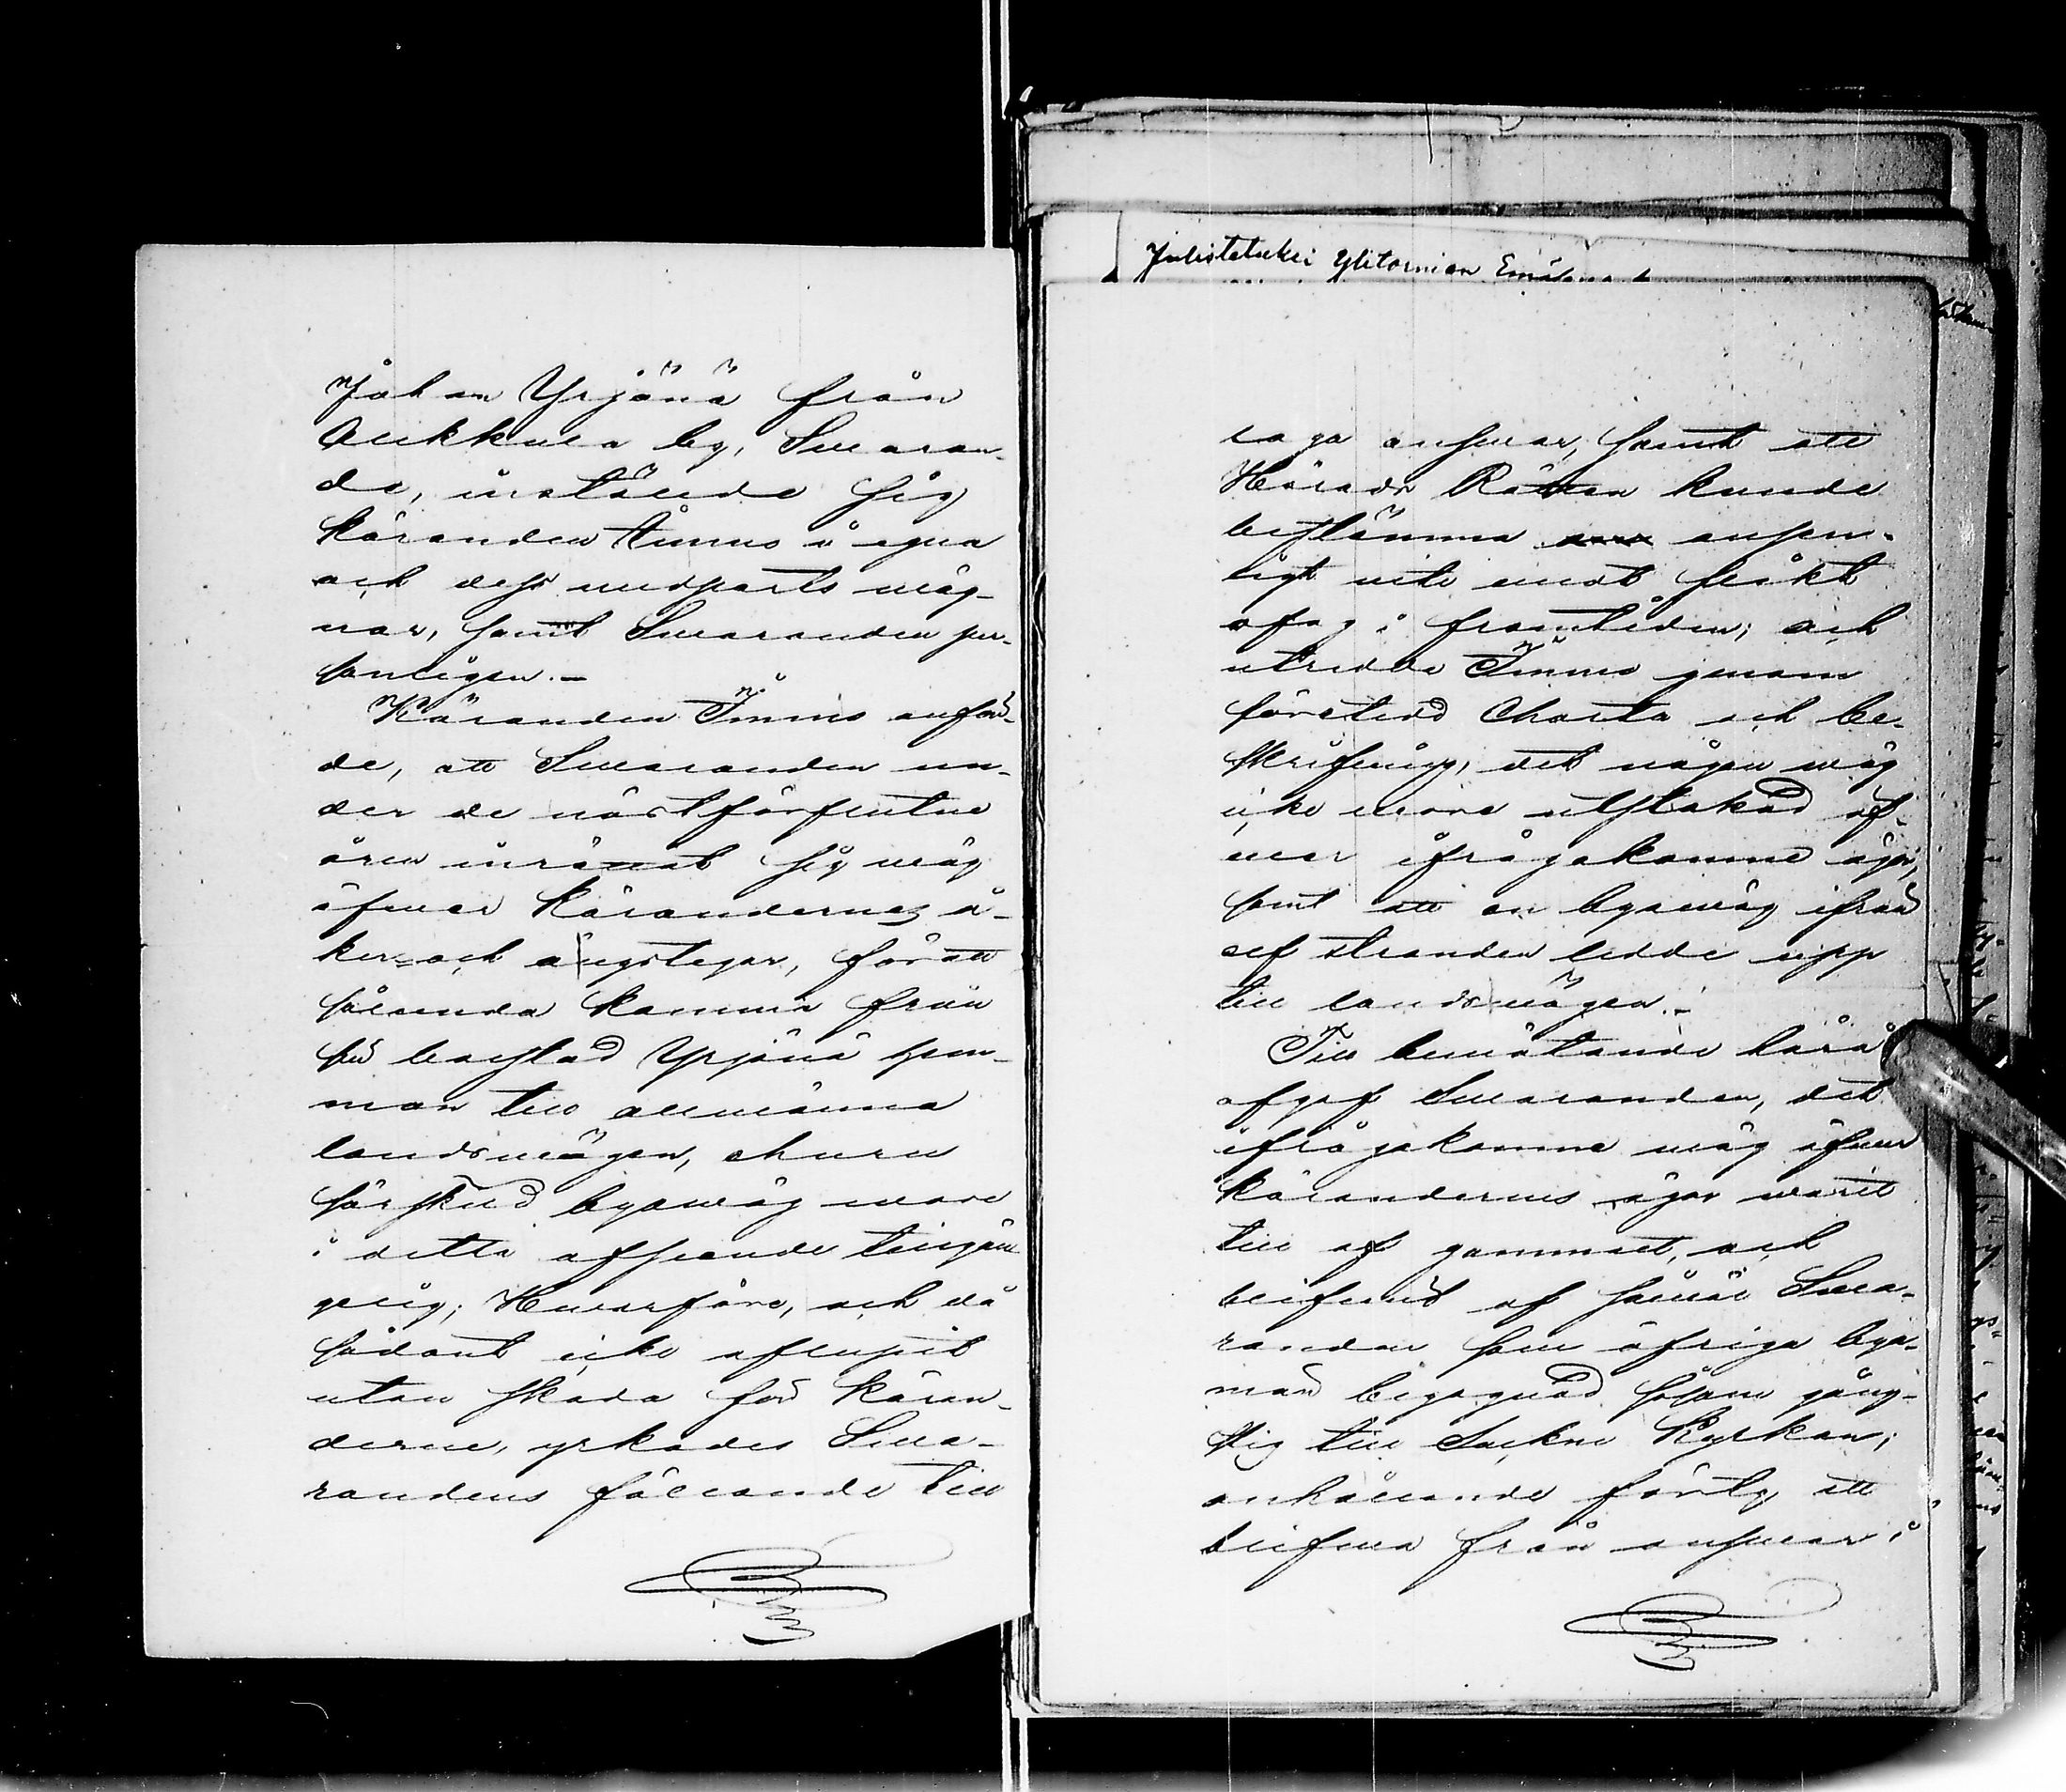 Johan Yrjänä från
Kukkula by, Swaran-
de, instälde sig
Käranden Immo i egna
och dess medparts wäg-
nar, samt Swaranden per-
sonligen.—
Käranden Immo anför-
de, att Swaranden un-
der de nästförflutne
åren inrättat sig wäg
öfwer Kärandernes å-
ker- och ängstegar, för att
sålunda komma från
sin bostad Yrjänä hem-
man till allmänna
landswägen, ehuru
särskild byawäg wore
i detta afseende tillgän-
gelig; Hwarföre, och då
sådant icke aflupit
utan skada för Käran-
derne, yrkades Swa-
randens fällande till
Julistetukki Ylitornion
laga answar, samt att
Härads Rätten kunde
bestämma ansen-
ligt wite emot slikt
ofog i framtiden; och
utredde Immo genom
företedd Charta och be-
skrifning, det någon wäg
icke wore utstakad öf-
wer ifrågakomne ägor,
samt att en byawäg ifrån
elf stranden ledde upp
till landswägen.—
Till bemötande härå
afgaf Swaranden, det
ifrågakomne wäg öfwer
Kärandernes ägor warit
till af gammalt, och
blifwit af såwäl Swa-
randen som öfriga bya-
män begagnad såsom gång-
stig till Sockne Kyrkan;
anhållande förty att
blifwa från answar i